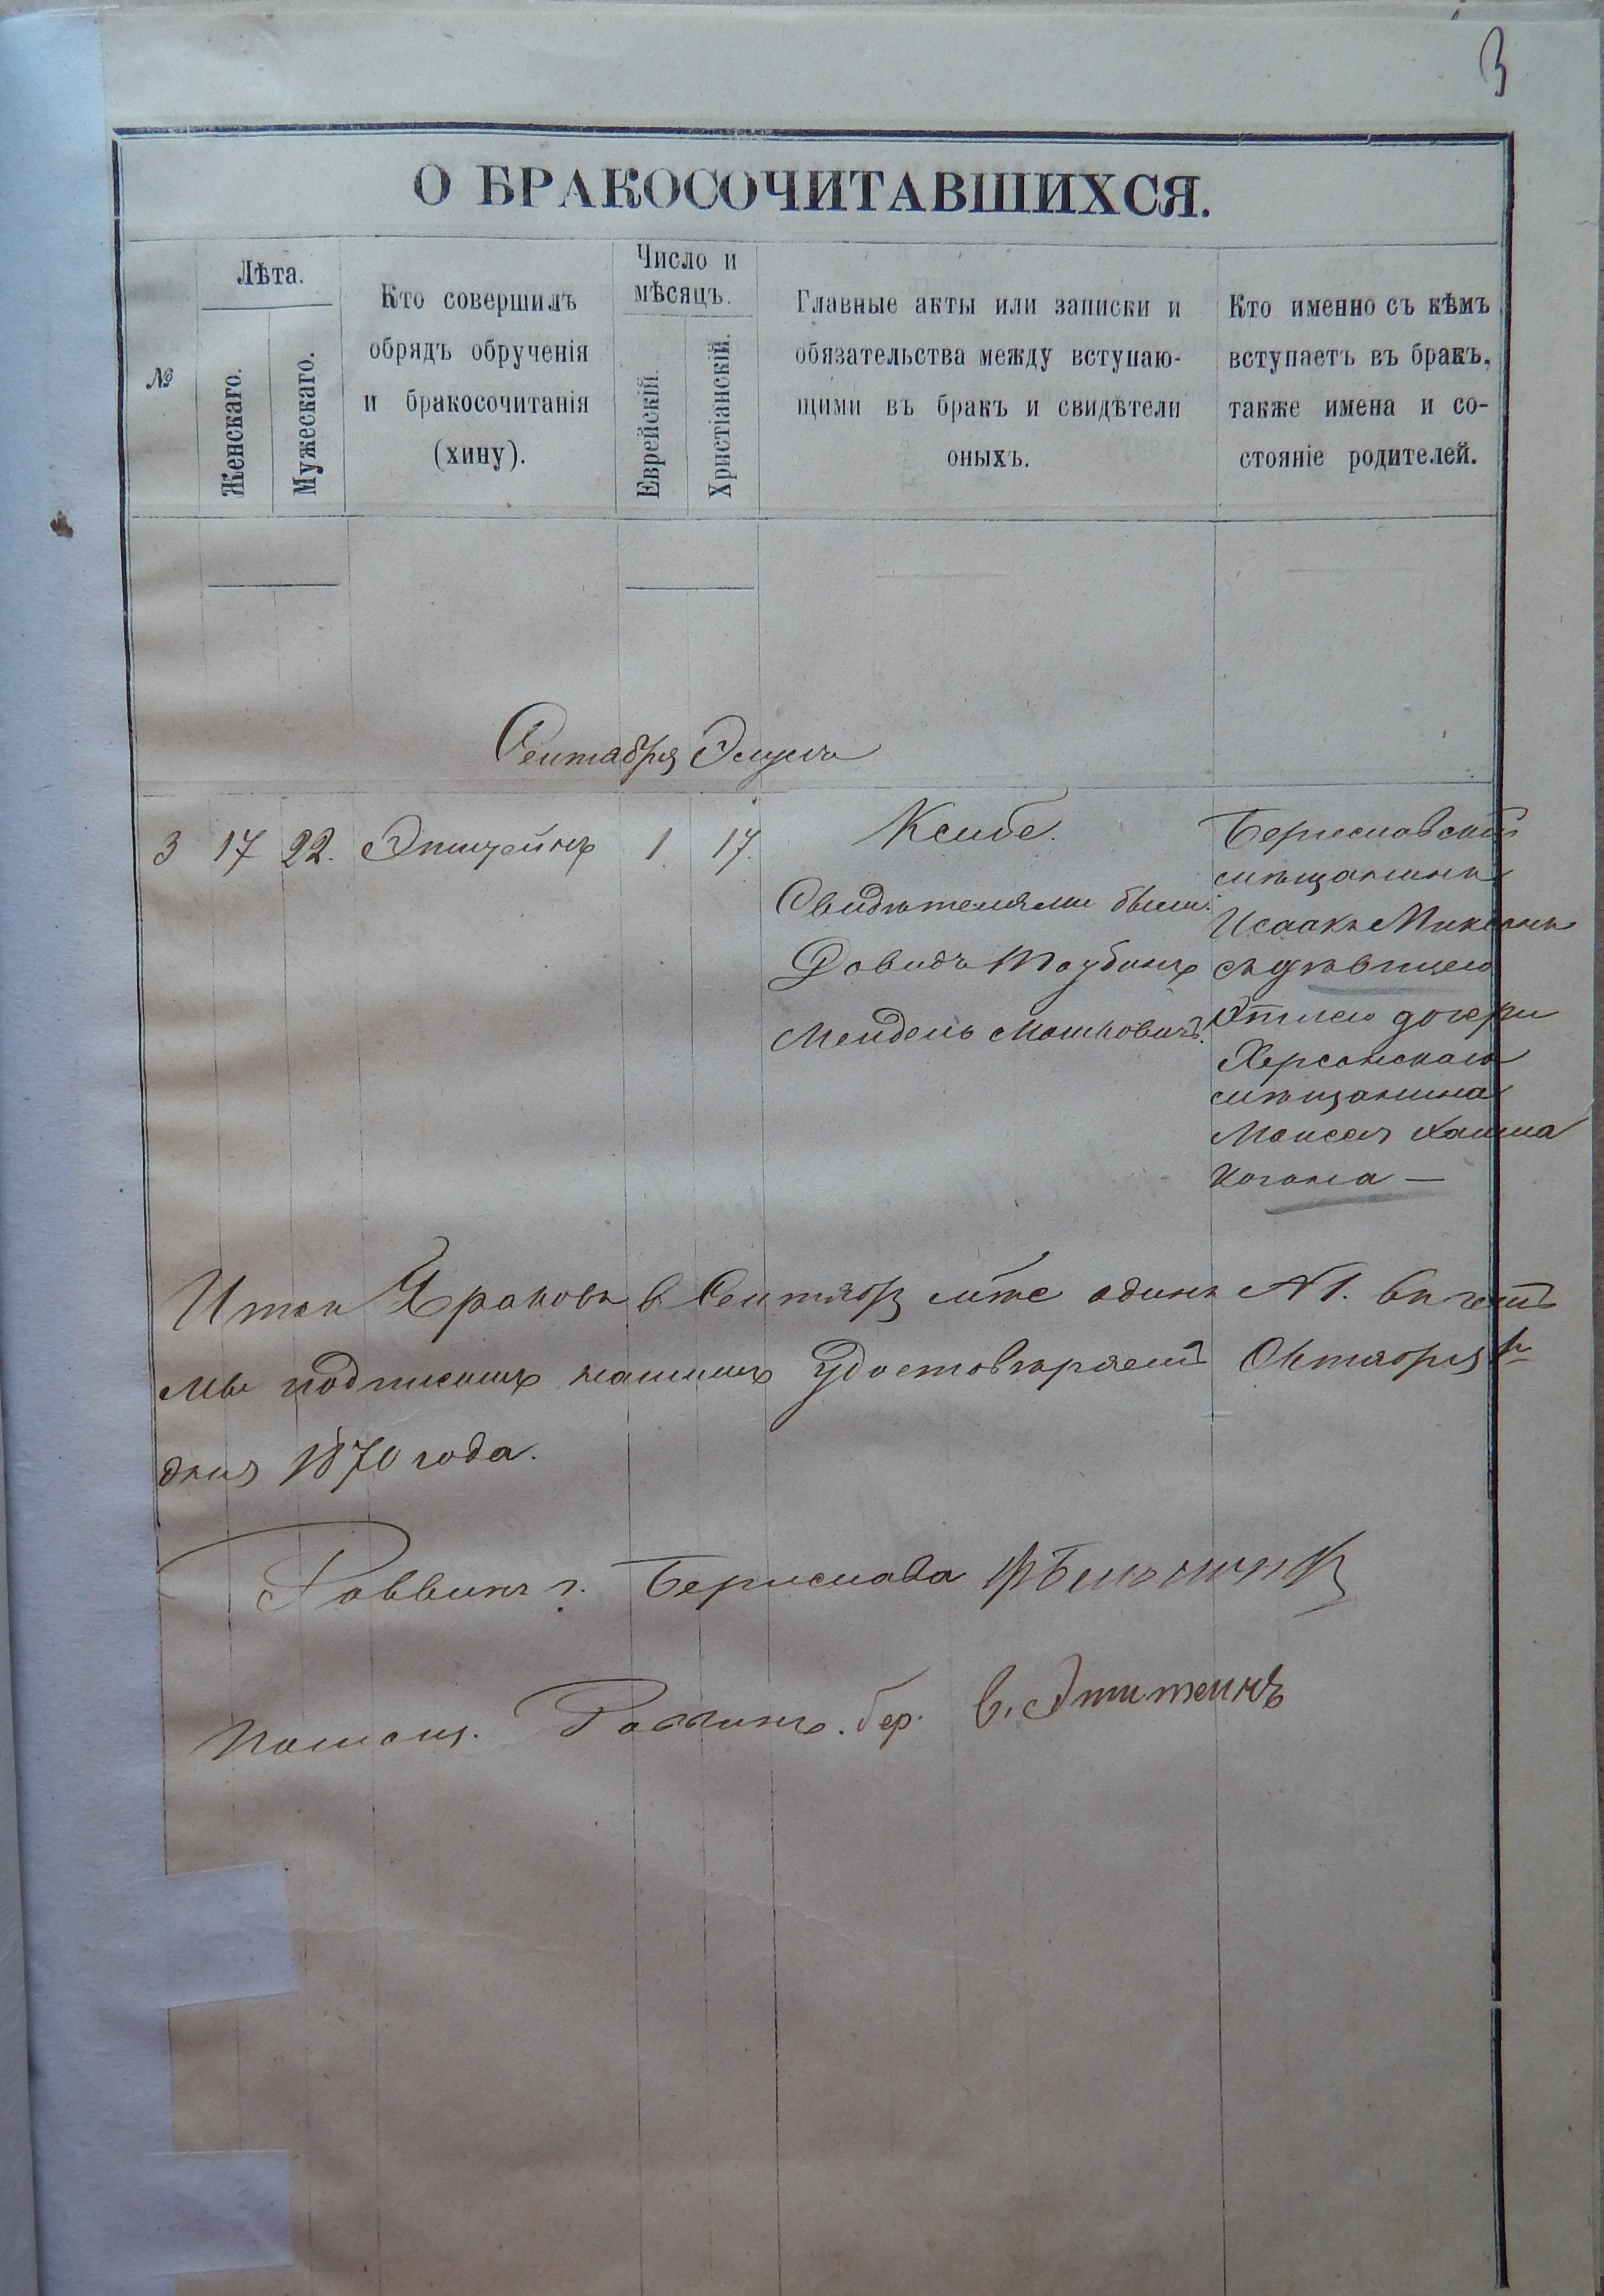 3
О БРАКОСОЧИТАВШИХСЯ.
№
Лѣта.
Женскаго.
Мужескаго.
Кто совершилъ
обрядъ обрученія
и бракосочитанія
(хину).
Число и
мѣсяцъ.
Еврейскій.
Христіанскій.
Главные акты или записки и
обязательства между вступаю-
щими въ бракъ и свидѣтели
оныхъ.
Кто именно съ кѣмъ
вступаетъ въ бракъ,
также имена и со-
стояніе родителей.
Сентября Элулъ
3 17 22. Эпштейнъ 1 17.
Ксибе.
Свидѣтелями были:
Довидъ Таубинъ
Мендель Мошковичъ.
Бериславскій
мѣщанинъ
Исаакъ
съ дѣвицею
Этлею дочери
Херсонскаго
мѣщанина
Моисея Хаима
Когана —
Итак браковъ в Сентябрѣ м-це одинъ №1. въ чемъ
мы подписомъ нашимъ удостовѣряемъ Октября 1
дня 1870 года.
Раввинъ г. Берислава
Помощ. Раввина. бер. Эпштеинъ